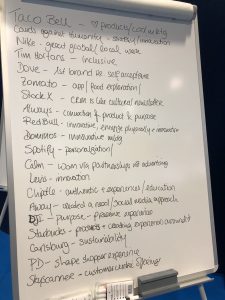 Taco Bell - ♡ product/cool mktg
Cards against humanity - snarky/innovation
Nike - great global/local work
Tim Hortons - inclusive
Dove - 1st brand re self acceptance
Zomato - app/food exploration/
StockX - CRM is like cultural newsletter
Always - connection of product & purpose
Red Bull - innovative, energize physically + innovation
Dominos - innovative mktg
Spotify - personalization/
Calm - work via partnerships vs advertising
Levis - innovation
Chipotle - authentic + experiences/education
Away - created a need/social media approach
- purpose - experience
Starbucks - products + creating experience around it
Carlsburg - sustainability/
PD - shape shopper experience
Skyscanner - customer centric offering